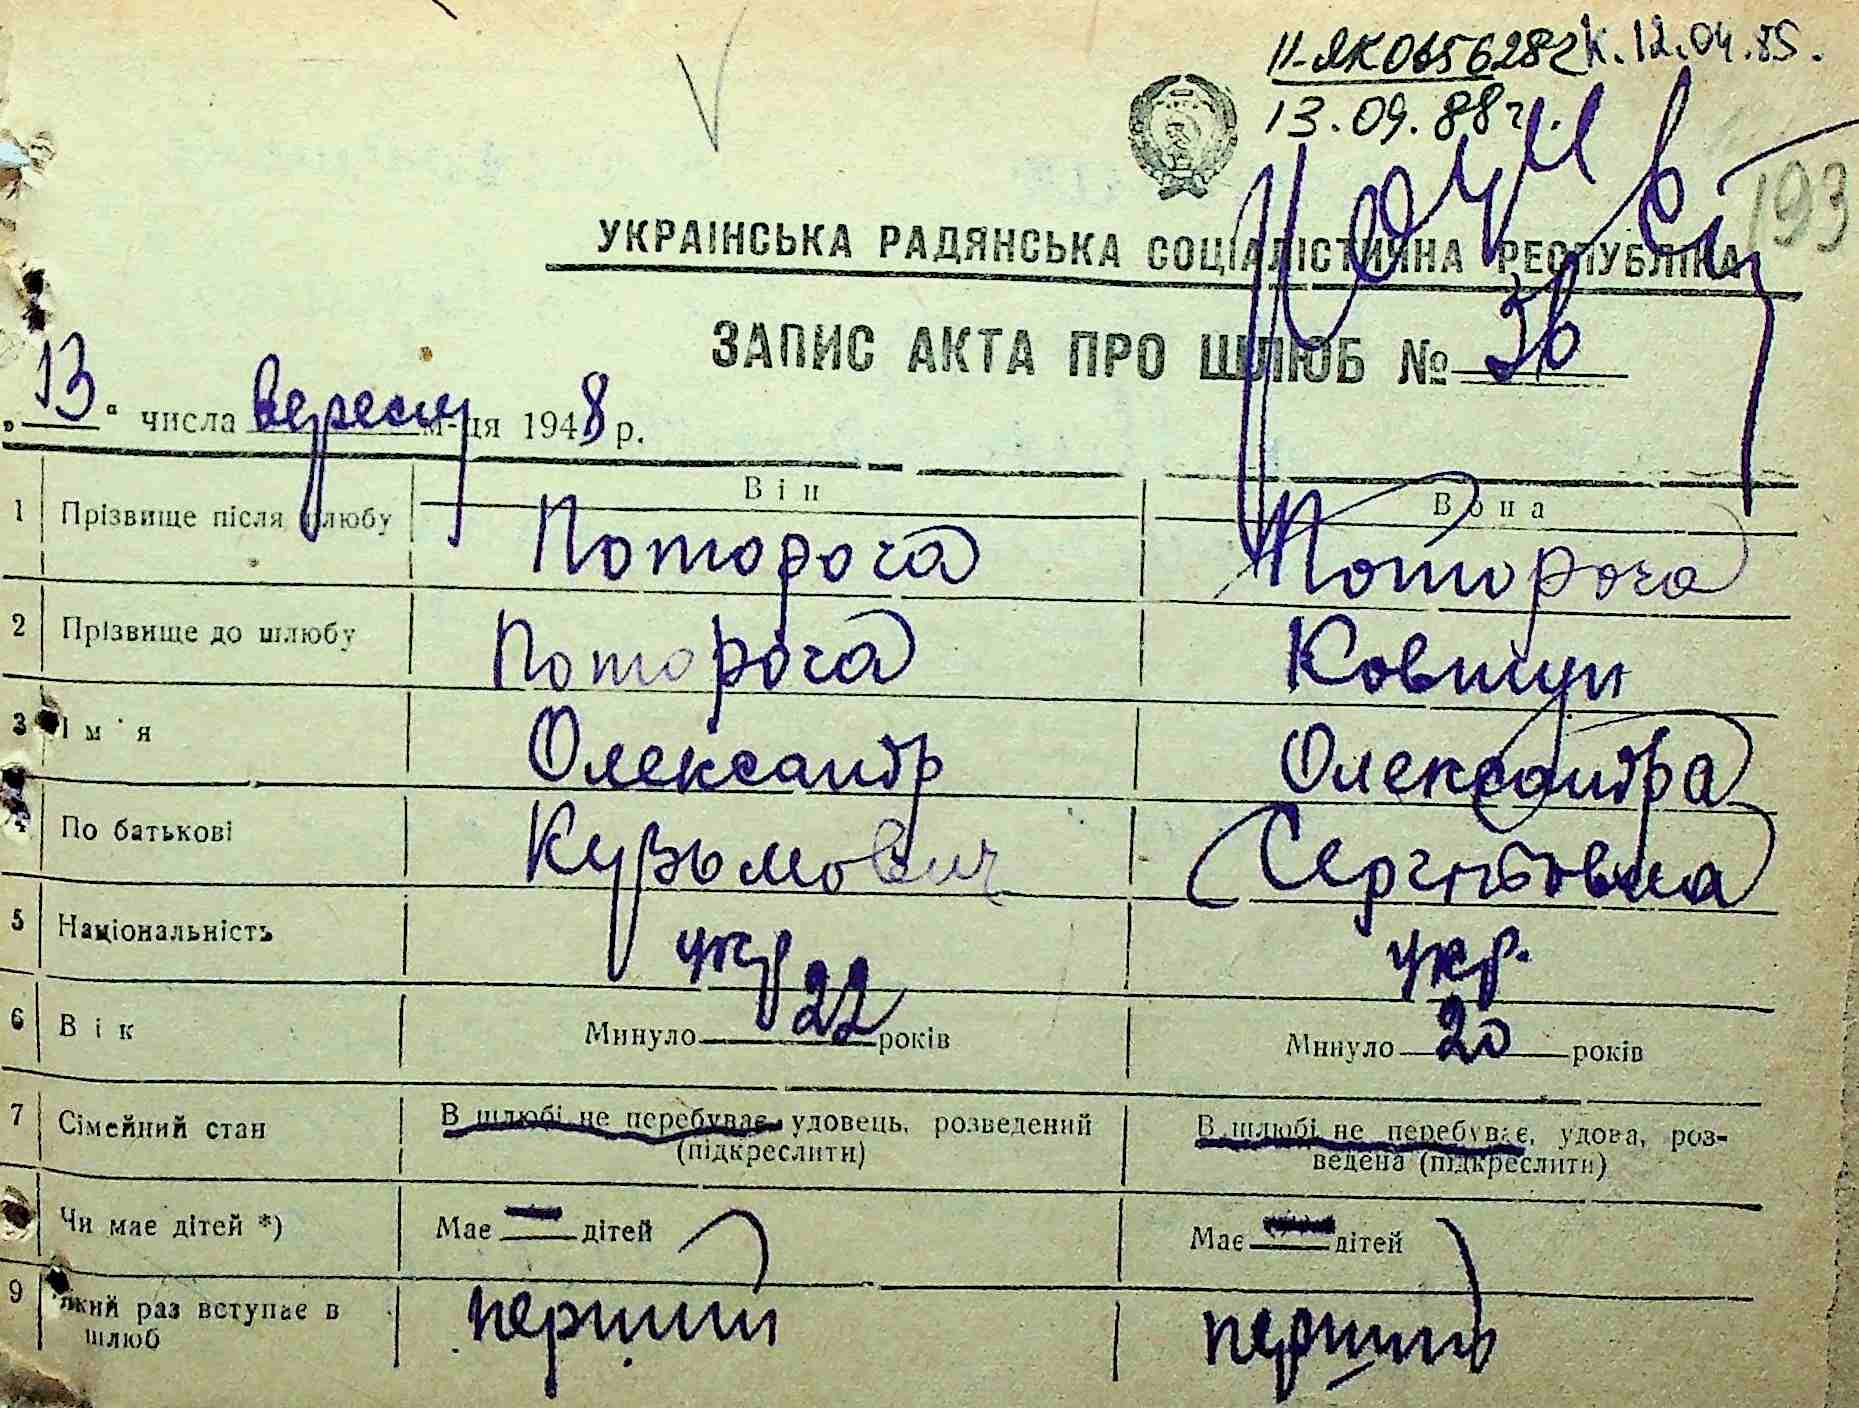 II-ЯК 0656282 к. 12.04.85.
13.09.88 г.
193
УКРАІНСЬКА РАДЯНСЬКА СОЦІАЛІСТИЧНА РЕСПУБЛІКА
ЗАПИС АКТА ПРО ШЛЮБ № 36
„13“ числа вересня м-ця 1948 р.
Він Вона
1 Прізвище після шлюбу Поторога Поторога
2 Прізвище до шлюбу Поторога Ковтун
3 Ім'я Олександр Олександра
4 По батькові Кузьмович Сергіївна
5 Національність укр укр.
6 Вік Минуло 22 років Минуло 20 років
7 Сімейний стан В шлюбі не перебуває, удовець, розведений В шлюбі не перебуває, удова, роз-
(підкреслити) ведена (підкреслити)
Чи має дітей *) Має — дітей Має — дітей
9 Який раз вступає в перший перший
шлюб